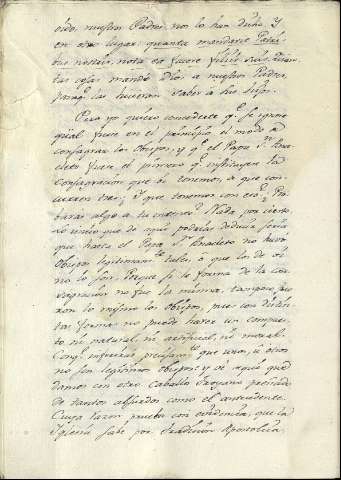 oido, nuestros Padres nos lo han dicho. Y
en otro lugar: quanta mandavit Patri-
bus nostris, nota ea facere filiis suis. Quan-
tas cosas mandó Dios a nuestros Padres,
paraq. las hicieran saber a los hijos.
Pero yo quiero concederte q. se ignore
qual fuere en el principio el modo de
consagrar los Obispos, y q. el Papa Sn. Ana-
cleto fuere el primero q. instituyera la
consagración que oi tenemos, a que con-
curren tres; ¿y que tenemos con eso? ¿Pro-
baras algo a tu intento? Nada, por cierto.
Lo unico que de aqui podrias deducir sería
que hasta el Papa S. Anacleto no huvo
Obispos legitimamte. tales, ó que los de oi
no lo son. Porque si la forma de la con-
sagración no fue la misma, tampoco fue-
ron lo mismo los Obispos, pues con distin-
tas formas no puede haver un compues-
to ni natural, ni artificial, ni moral.
inferirás precisamte. que unos, u otros
no son legitimos Obispos; y ve aqui que
damos con otro Caballo Troyano preñado
de tantos absurdos como el antecedente.
Cuya razon prueba con evidencia, que la
Iglesia sabe por tradición Apostolica,